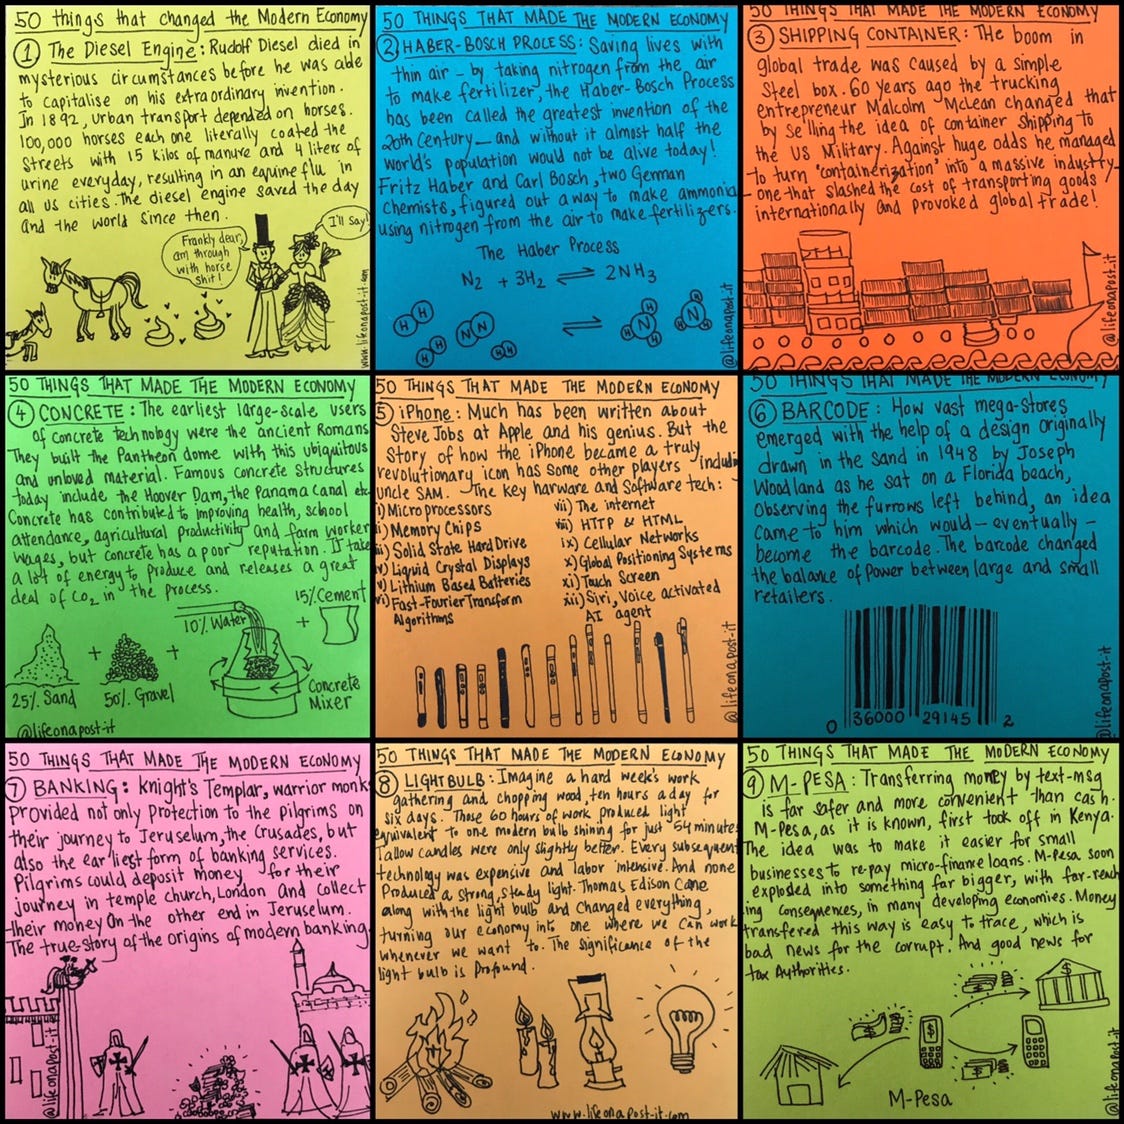 50 things that changed the Modern Economy
1 The Diesel Engine: Rudolf Diesel died in
mysterious circumstances before he was able
to capitalise on his extraordinary invention.
In 1892, urban transport depended on horses.
100,000 horses each one literally coated the
Streets with 15 kilos of manure and 4 liters of
urine everyday, resulting in an equine flu in
all US cities. The diesel engine saved the day
and the world since then.
I'll say!
Frankly dear,
am through
with horse
shit!
www.lifeonapost-it.com
50 THINGS THAT MADE THE MODERN ECONOMY
2 HABER-BOSCH PROCESS: Saving lives with
thin air - by taking nitrogen from the air
to make fertilizer, the Haber-Bosch Process
has been called the greatest invention of the
20th Century — and without it almost half the
world's population would not be alive today!
Fritz Haber and Carl Bosch, two German
Chemists, figured out a way to make ammonia
using nitrogen from the air to make fertilizers.
The Haber Process
N2 + 3H2 ⇌ 2NH3
H H N N H H H H
⇌
H N H H H N H H
@lifeonapost-it
50 THINGS THAT MADE THE MODERN ECONOMY
3 SHIPPING CONTAINER: The boom in
global trade was caused by a simple
Steel box. 60 years ago the trucking
entrepreneur Malcolm McLean changed that
by selling the idea of container shipping to
the US Military. Against huge odds he managed
to turn 'containerization' into a massive industry
- one that slashed the cost of transporting goods
internationally and provoked global trade!
@lifeonapost-it
50 THINGS THAT MADE THE MODERN ECONOMY
4 CONCRETE: The earliest large-scale users
of concrete technology were the ancient Romans
They built the Pantheon dome with this ubiquitous
and unloved material. Famous Concrete Structures
today include the Hoover Dam, the Panama Canal etc
Concrete has contributed to improving health, school
attendance, agricultural productivity and farm worker
wages, but concrete has a poor reputation. It take
a lot of energy to produce and releases a great
deal of CO2 in the process.
15% Cement
10% Water
+
+
+
25% Sand
50% Gravel
Concrete
Mixer
@lifeonapost-it
50 THINGS THAT MADE THE MODERN ECONOMY
5 iPhone: Much has been written about
Steve Jobs at Apple and his genius. But the
Story of how the iPhone became a truly
revolutionary icon has some other players - includi
uncle SAM. The key harware and Software tech:
i) Microprocessors
ii) Memory Chips
iii) Solid State Hard Drive
iv) Liquid Crystal Displays
v) Lithium Based Batteries
vi) Fast-Fourier Transform
Algorithms
vii) The internet
viii) HTTP & HTML
ix) Cellular Networks
x) Global Positioning Systems
xi) Touch Screen
xii) Siri, Voice activated
AI agent
@lifeonapost-it
50 THINGS THAT MADE THE MODERN ECONOMY
6 BARCODE: How vast mega-Stores
emerged with the help of a design originally
drawn in the sand in 1948 by Joseph
Woodland as he sat on a Florida beach,
Observing the furrows left behind, an idea
Came to him which would — eventually —
become the barcode. The barcode changed
the balance of Power between large and small
retailers.
0 36000 29145 2
@lifeonapost-it
50 THINGS THAT MADE THE MODERN ECONOMY
7 BANKING: Knight's Templar, warrior monks
Provided not only Protection to the pilgrims on
their journey to Jeruselum, the Crusades, but
also the earliest form of banking services.
Pilgrims could deposit money for their
journey in temple church, London and collect
their money on the other end in Jeruselum.
The true-story of the origins of modern banking.
@lifeonapost-it
50 THINGS THAT MADE THE MODERN ECONOMY
8 LIGHTBULB: Imagine a hard week's work
gathering and chopping wood, ten hours a day for
six days. Those 60 hours of work produced light
equivalent to one modern bulb shining for just 54 minutes
Tallow candles were only slightly better. Every subsequent
technology was expensive and labor intensive. And none
Produced a strong, steady light. Thomas Edison Came
along with the light bulb and changed everything,
turning our economy into one where we can work
whenever we want to. The significance of the
light bulb is Profound.
www.lifeonapost-it.com
50 THINGS THAT MADE THE MODERN ECONOMY
9 M-PESA: Transferring money by text-msg
is far safer and more convenient than cash.
M-Pesa, as it is known, first took off in Kenya.
The idea was to make it easier for small
businesses to re-pay micro-finance loans. M-Pesa soon
exploded into something far bigger, with far-reach
ing consequences, in many developing economies. Money
transferred this way is easy to trace, which is
bad news for the corrupt. And good news for
tax Authorities.
$
$
M-Pesa
@lifeonapost-it